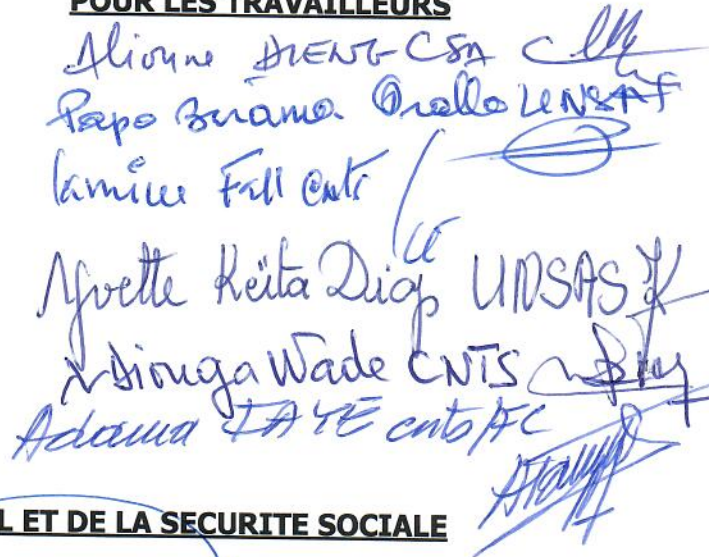 POUR LES TRAVAILLEURS
Alioune DIENG CSA
Papa Birama Diallo UNSAS
lamine Fall cnts
Yvette Keïta Diop UNSAS
Ndiouga Wade CNTS
Adama FAYE cnts/FC
L ET DE LA SECURITE SOCIALE